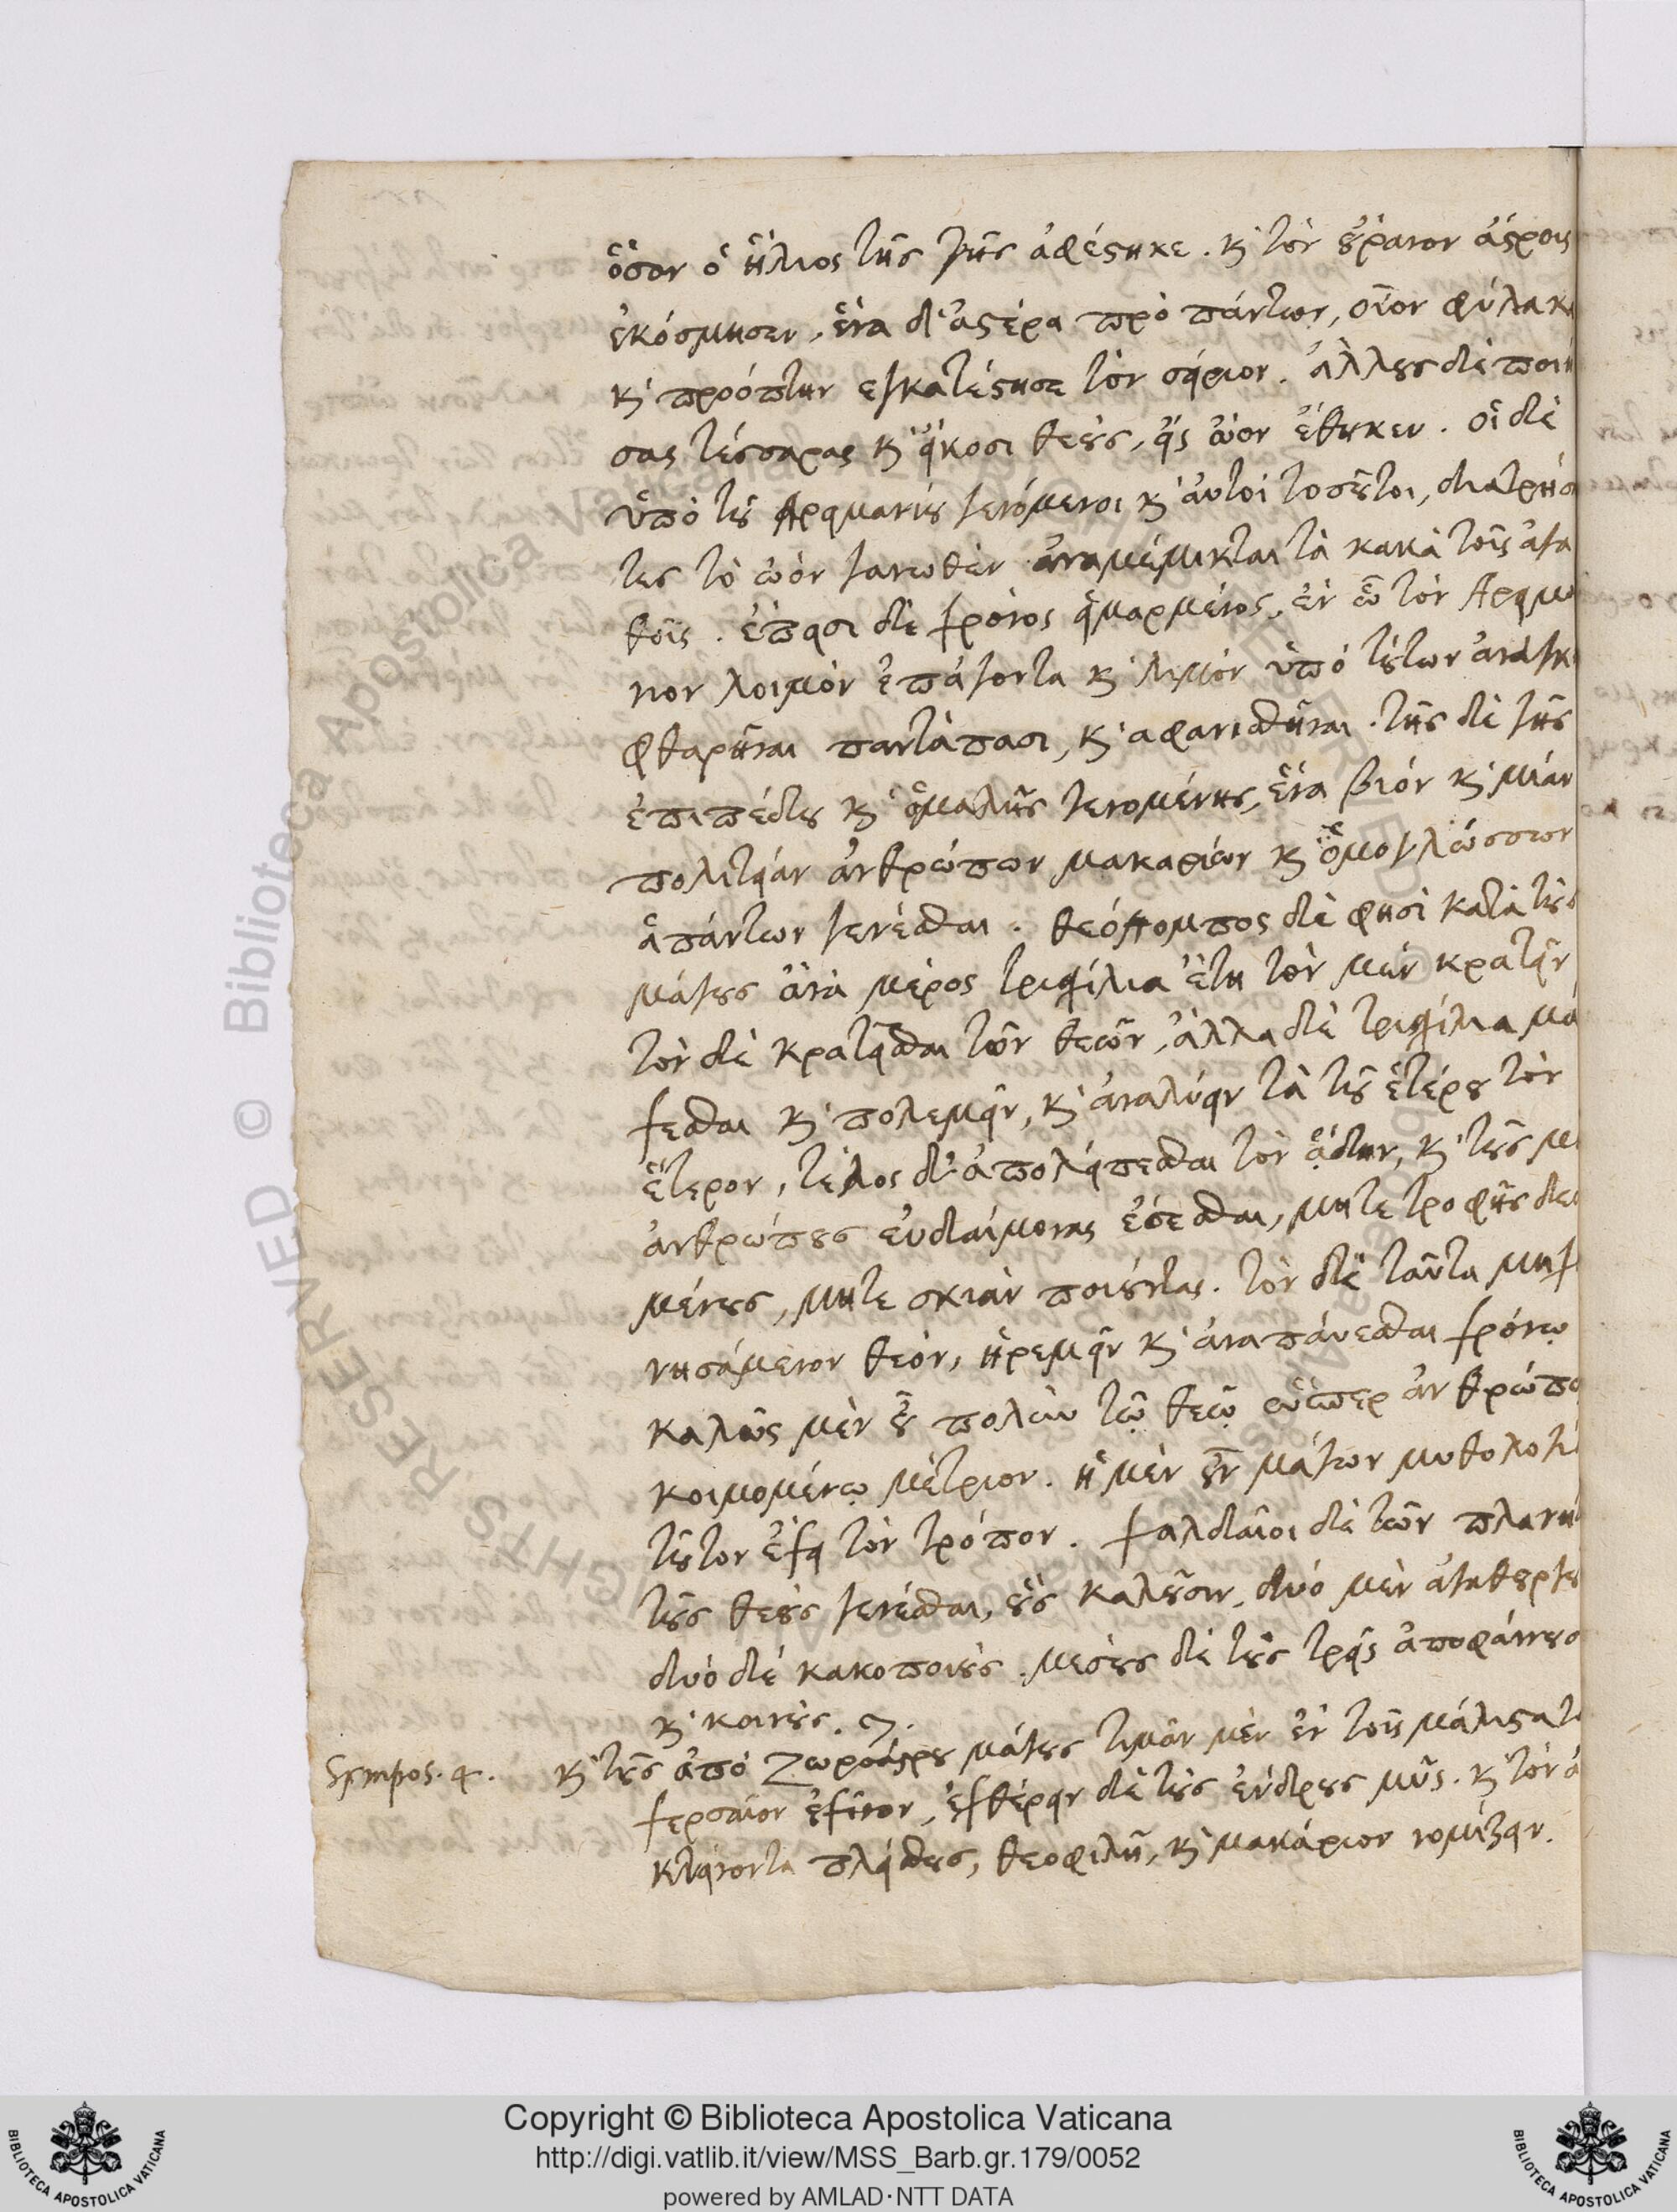 ὅσον ὁ ἥλιος τῆς γῆς ἀφέστηκε. κ̀ τὸν οὐρανὸν ἄστροις
ἐκόσμησεν, ἕνα δ' ἀστέρα πρὸ πάντων, οἷον φύλακα
κ̀ προόπτην ἐγκατέστησε τὸν σείριον. ἄλλους δὲ ποιή
σας τέσσαρας κ̀ εἴκοσι θεοὺς, εἰς ὠὸν ἔθηκεν. οἱ δὲ
ὑπὸ τοῦ Ἀρειμανίου γενόμενοι κ̀ αὐτοὶ τοσοῦτοι, διατρήσαν
τες τὸ ὠὸν γανωθὲν ἀναμέμικται τὰ κακὰ τοῖς ἀγα
θοῖς. ἔπεισι δὲ χρόνος εἱμαρμένος, ἐν ᾧ τὸν Ἀρειμά
νιον λοιμὸν ἐπάγοντα κ̀ λιμὸν ὑπὸ τούτων ἀνάγκη
φθαρῆναι παντάπασι, κ̀ ἀφανισθῆναι. τῆς δὲ γῆς
ἐπιπέδου κ̀ ὁμαλῆς γενομένης, ἕνα βίον κ̀ μίαν
πολιτείαν ἀνθρώπων μακαρίων κ̀ ὁμογλώσσων
ἁπάντων γενέσθαι. Θεόπομπος δὲ φησὶ κατὰ τοὺς
μάγους ἀνὰ μέρος τρισχίλια ἔτη τὸν μὲν κρατεῖν
τὸν δὲ κρατεῖσθαι τῶν θεῶν, ἄλλα δὲ τρισχίλια μά
χεσθαι κ̀ πολεμεῖν, κ̀ ἀναλύειν τὰ τοῦ ἑτέρου τὸν
ἕτερον, τέλος δ' ἀπολείπεσθαι τὸν ᾅδην, κ̀ τοὺς μὲν
ἀνθρώπους εὐδαίμονας ἔσεσθαι, μήτε τροφῆς δεο
μένους, μήτε σκιὰν ποιοῦντας. τὸν δὲ ταῦτα μηχα
νησάμενον θεὸν, ἠρεμεῖν κ̀ ἀναπαύεσθαι χρόνῳ
καλῶς μὲν οὐ πολὺν τῷ θεῷ ὥσπερ ἀνθρώπῳ
κοιμομένῳ μέτριον. ἡ μὲν οὖν μάγων μυθολογία
τοῦτον ἔχει τὸν τρόπον. Χαλδαῖοι δὲ τῶν πλανή
τοὺς θεοὺς γενέσθαι, οὓς καλοῦσιν, δύο μὲν ἀγαθουργοὺς
δύο δὲ κακοποιοὺς. μέσους δὲ τοὺς τρεῖς ἀποφαίνουσι
κ̀ κοινούς.
Sympos. 4. κ̀ τοὺς ἀπὸ Ζωροάστρου μάγους τιμᾶν μὲν ἐν τοῖς μάλιστα τὸν
χερσαῖον ἐχῖνον, ἐχθαίρειν δὲ τοὺς ἐνύδρους μῦς. κ̀ τὸν ἀπο
κτείνοντα πλείστους, θεοφιλῆ, κ̀ μακάριον νομίζειν.
© Biblioteca Apostolica Vaticana
Copyright © Biblioteca Apostolica Vaticana
http://digi.vatlib.it/view/MSS_Barb.gr.179/0052
powered by AMLAD·NTT DATA